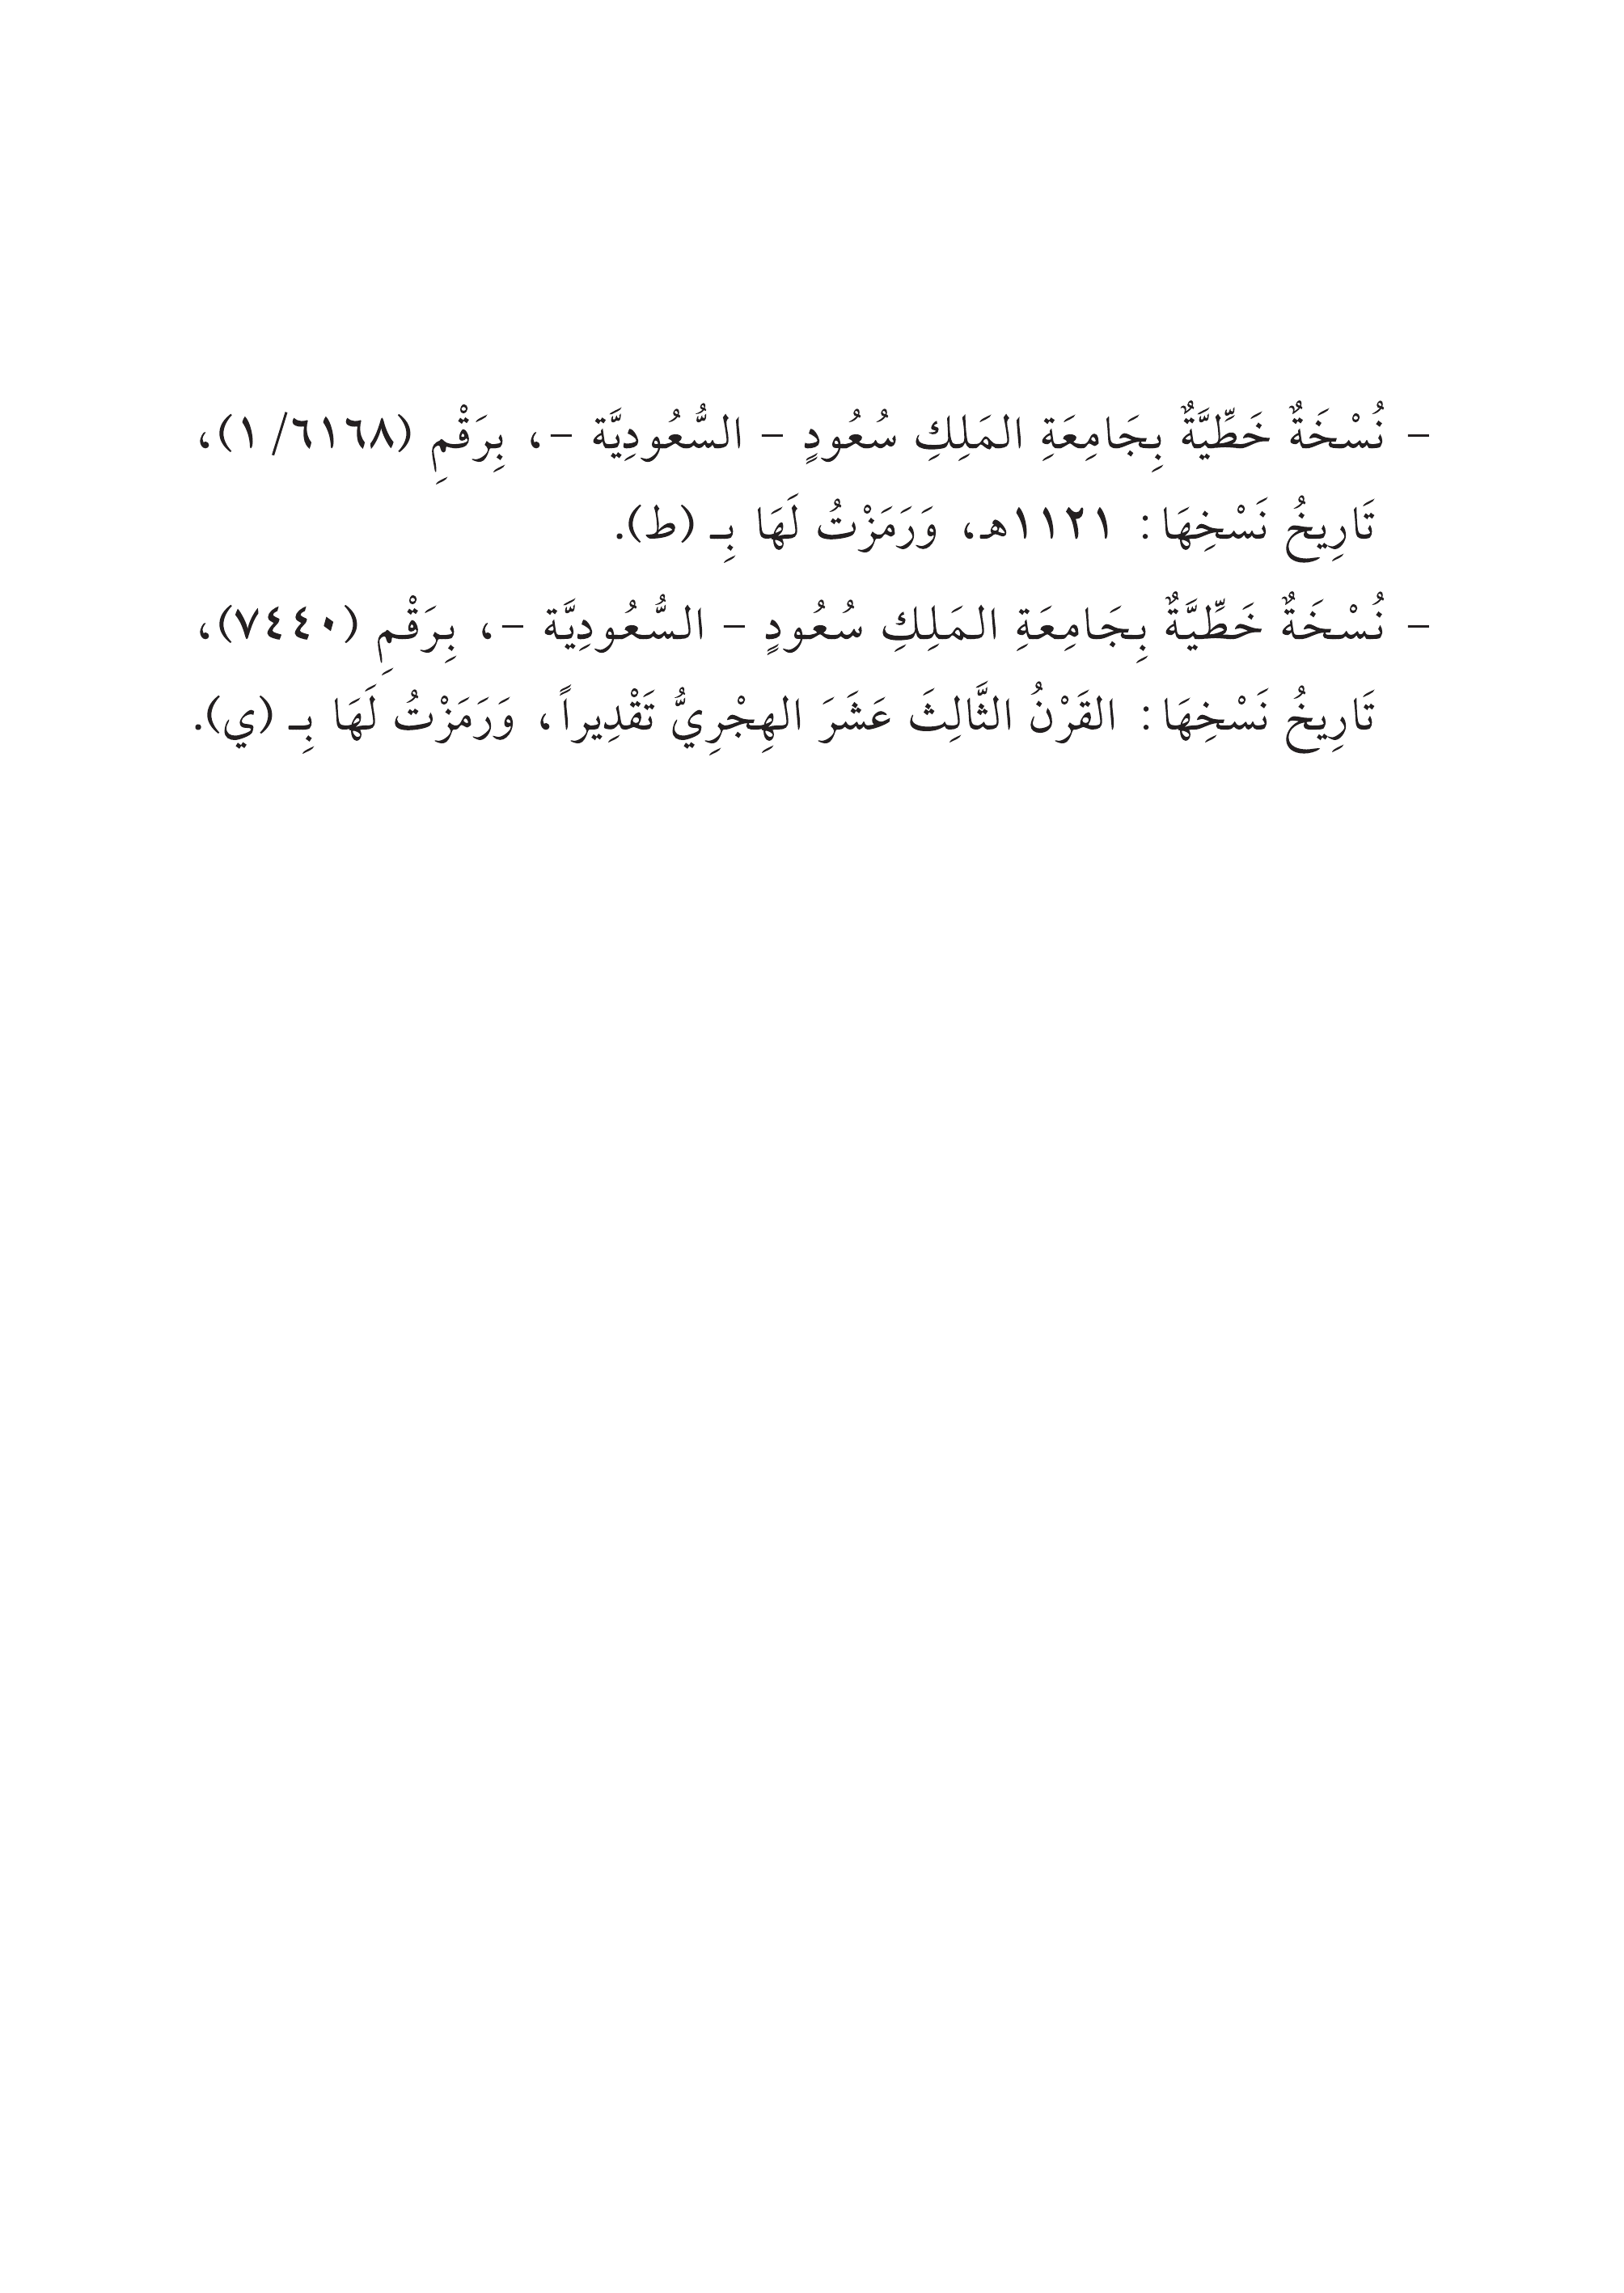 - نُسْخَةٌ خَطِّيَّةٌ بِجَامِعَةِ المَلِكِ سُعُودٍ - السُّعُودِيَّة -، بِرَقْمِ (٦١٦٨/ ١)،
تَارِيخُ نَسْخِهَا: ١١٢١هـ، وَرَمَزْتُ لَهَا بِـ (ط).
- نُسْخَةٌ خَطِّيَّةٌ بِجَامِعَةِ المَلِكِ سُعُودٍ - السُّعُودِيَّة -، بِرَقْمِ (٧٤٤٠)،
تَارِيخُ نَسْخِهَا: القَرْنُ الثَّالِثَ عَشَرَ الهِجْرِيُّ تَقْدِيراً، وَرَمَزْتُ لَهَا بِـ (ي).